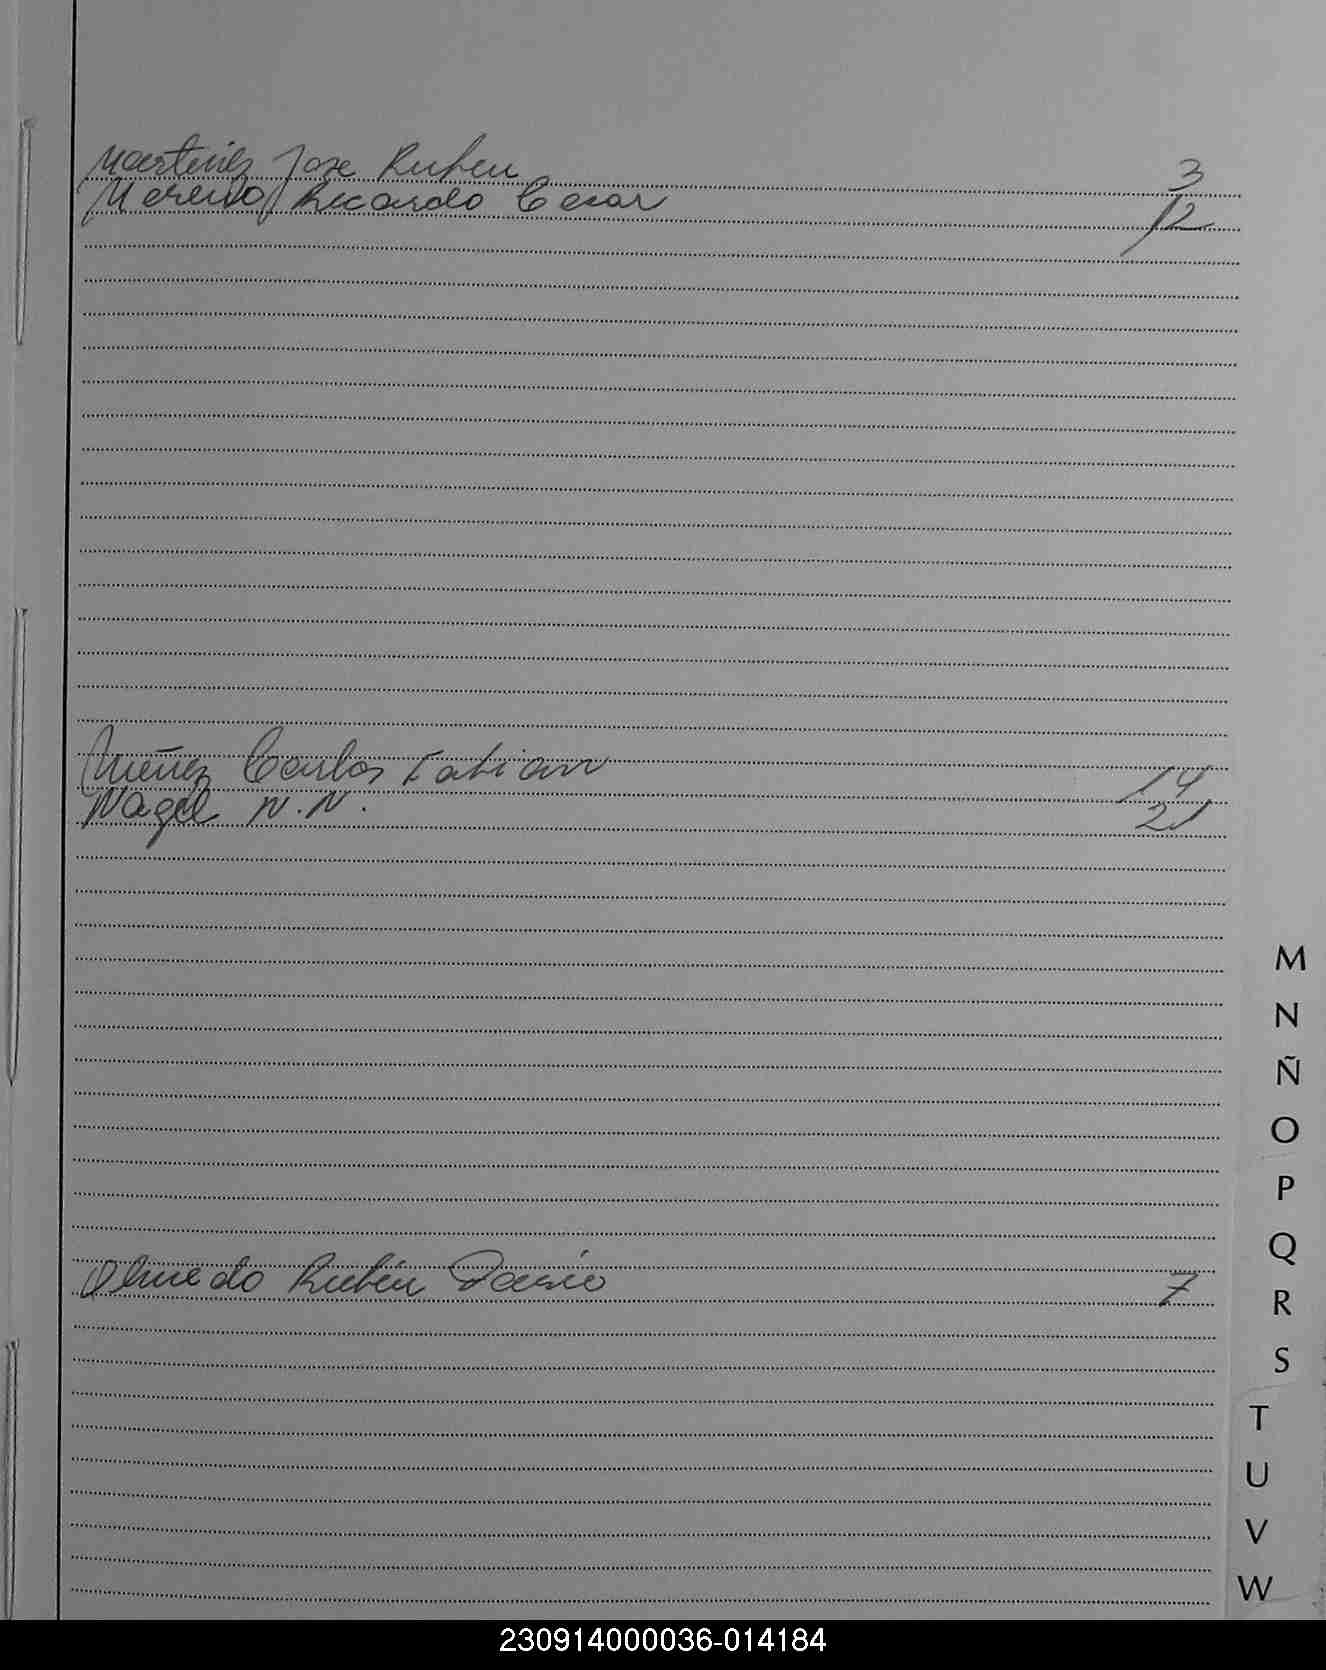 Martinez Jose Ruben 3
Moreno Ricardo Cesar 12
Nuñez Carlos Fabian 14
Nagel N.N. 21
Olmedo Rubén Dario 7
M
N
Ñ
O
P
Q
R
S
T
U
V
W
230914000036-014184